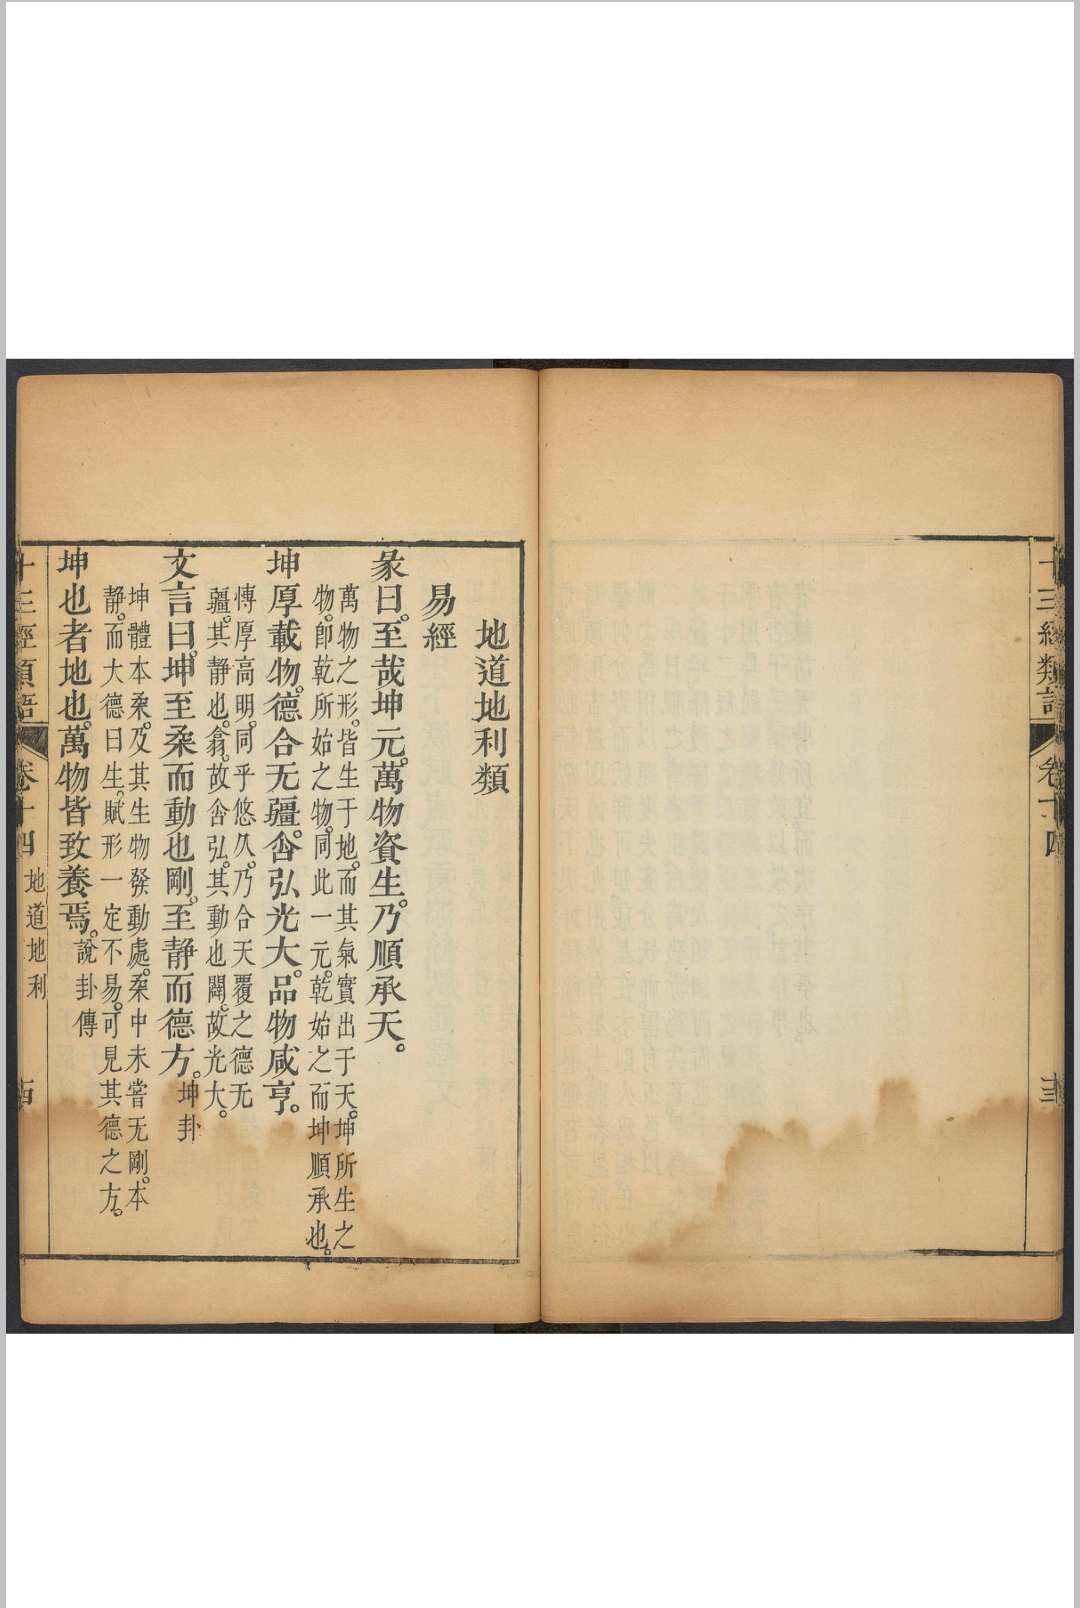 十三經類語
卷十四
十三
地道地利類
易經
彖曰。至哉坤元。萬物資生。乃順承天。
萬物之形。皆生于地。而其氣實出于天。坤所生之
物。卽乾所始之物。同此一元。乾始之而坤順承也。
坤厚載物。德合无疆。含弘光大。品物咸亨。
愽厚高明。同乎悠久。乃合天覆之德无
疆。其靜也。翕。故含弘。其動也闢。故光大。
文言曰。坤至柔而動也剛。至靜而德方。坤卦
坤體本柔。及其生物發動處。柔中未嘗无剛。本
靜。而大德曰生。賦形一定不易。可見其德之方。
坤也者地也。萬物皆致養焉。說卦傳
十三經類語
卷十四
地道地利